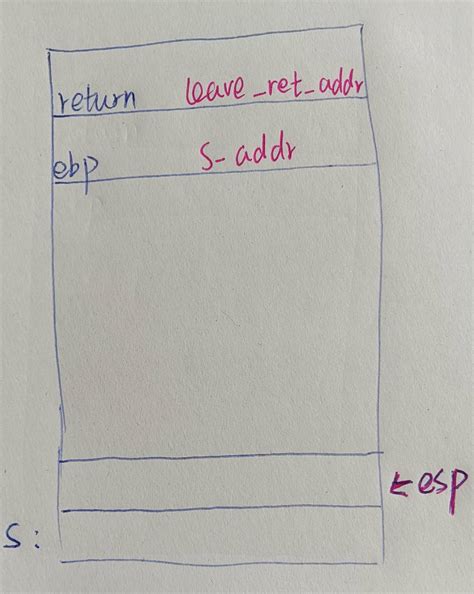 return leave_ret_addr
ebp S_addr
←esp
S: